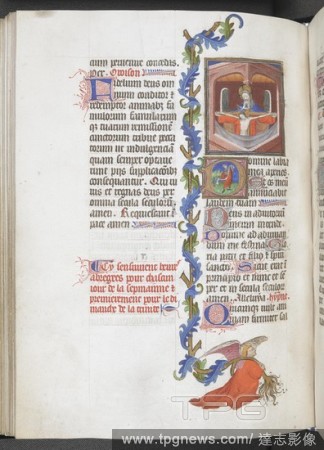 concedas
per. Oroison
Fidelium deus om
nium conditor et
redemptor animabz fa
mulorum famularum
que tuarum remissione
cunctorum tribue pecca
torum ut indulgencia
quam semper optaue
runt piis supplicacionibz
consequantur. Qui uiu
is et regnas deus per
omnia secula seculorum
amen. Requiescant i
pace amen
Cy sensuiuent heures
abregees pour chascun
iour de la sepmaine et
premierement pour le di
manche de la trinite
Domine labia
mea aperies
Et os meu
annunciabit
laudem tuam
Deus in adiutoriu
meum intende
Domine ad adiuuan
dum me festina
Gloria patri et filio et spiri
tui sancto. Sicut erat i
principio et nunc et se
per et in secula seculor
amen. Alleluya. hympne
TPG
www.tpgnews.com/達志影像